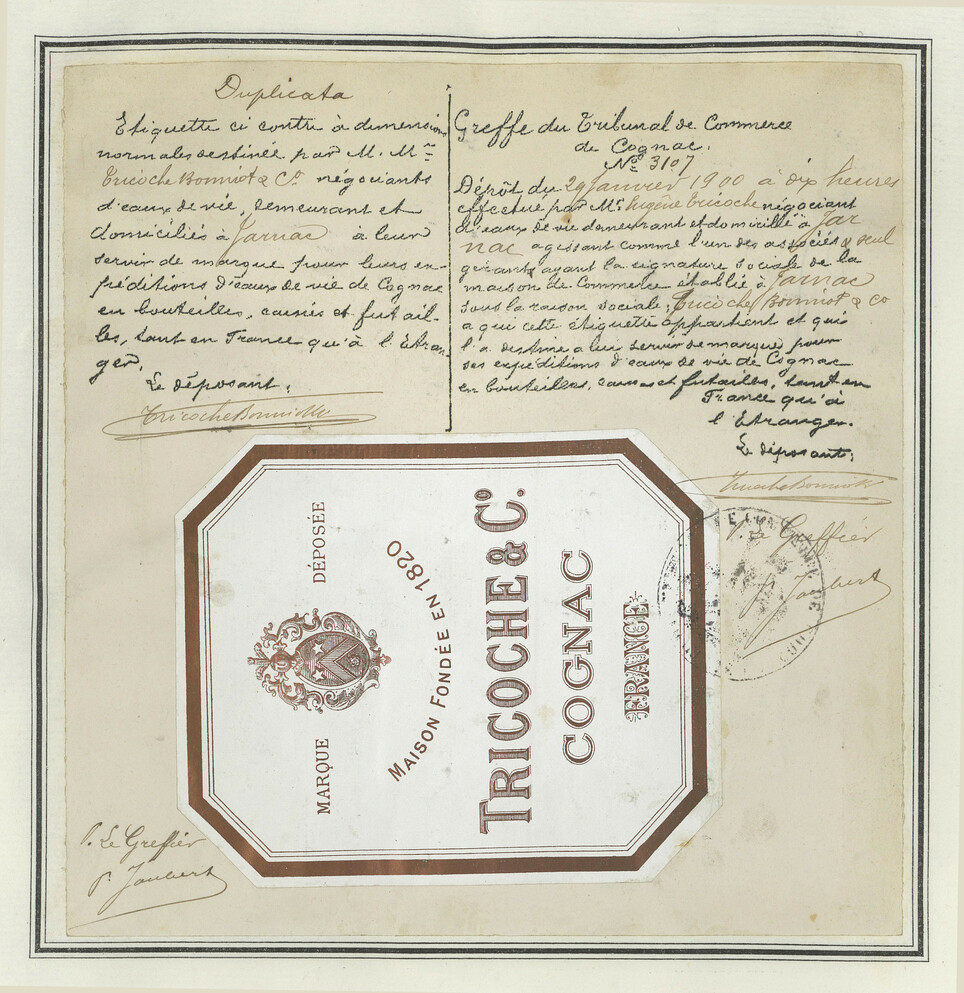 Duplicata
Etiquette ci contre à dimensions
normales destinée par M. Mrs
Tricoche Bonniot & Co négociants
d'eaux de vie, demeurant et
domiciliés à Jarnac à leur
servir de marque pour leurs ex-
péditions d'eaux de vie de Cognac
en bouteilles, caisses et futail-
les, tant en France qu'à l'Etran-
ger.
Le déposant:
Tricoche Bonniot & Co
Greffe du Tribunal de Commerce
de Cognac.
No 3107
Dépôt du 29 Janvier 1900 à dix heures
effectué par Mr Eugène Tricoche négociant
d'eaux de vie demeurant et domicilié à Jar
nac agissant comme l'un des associés & seul
gérant ayant la signature sociale de la
maison de Commerce établie à Jarnac
sous la raison sociale: Tricoche Bonniot & Co
a qui cette étiquette appartient et qui
l'a destine a lui servir de marque pour
ses expéditions d'eaux de vie de Cognac
en bouteilles, caisses et futailles, tant en
France qu'à
l'Etranger.
Le déposant:
Tricoche Bonniot & Co
P. Le Greffier
P. Jaubert
MARQUE DÉPOSÉE
MAISON FONDÉE EN 1820
TRICOCHE & Co.
COGNAC
FRANCE
P. Le Greffier
P. Jaubert